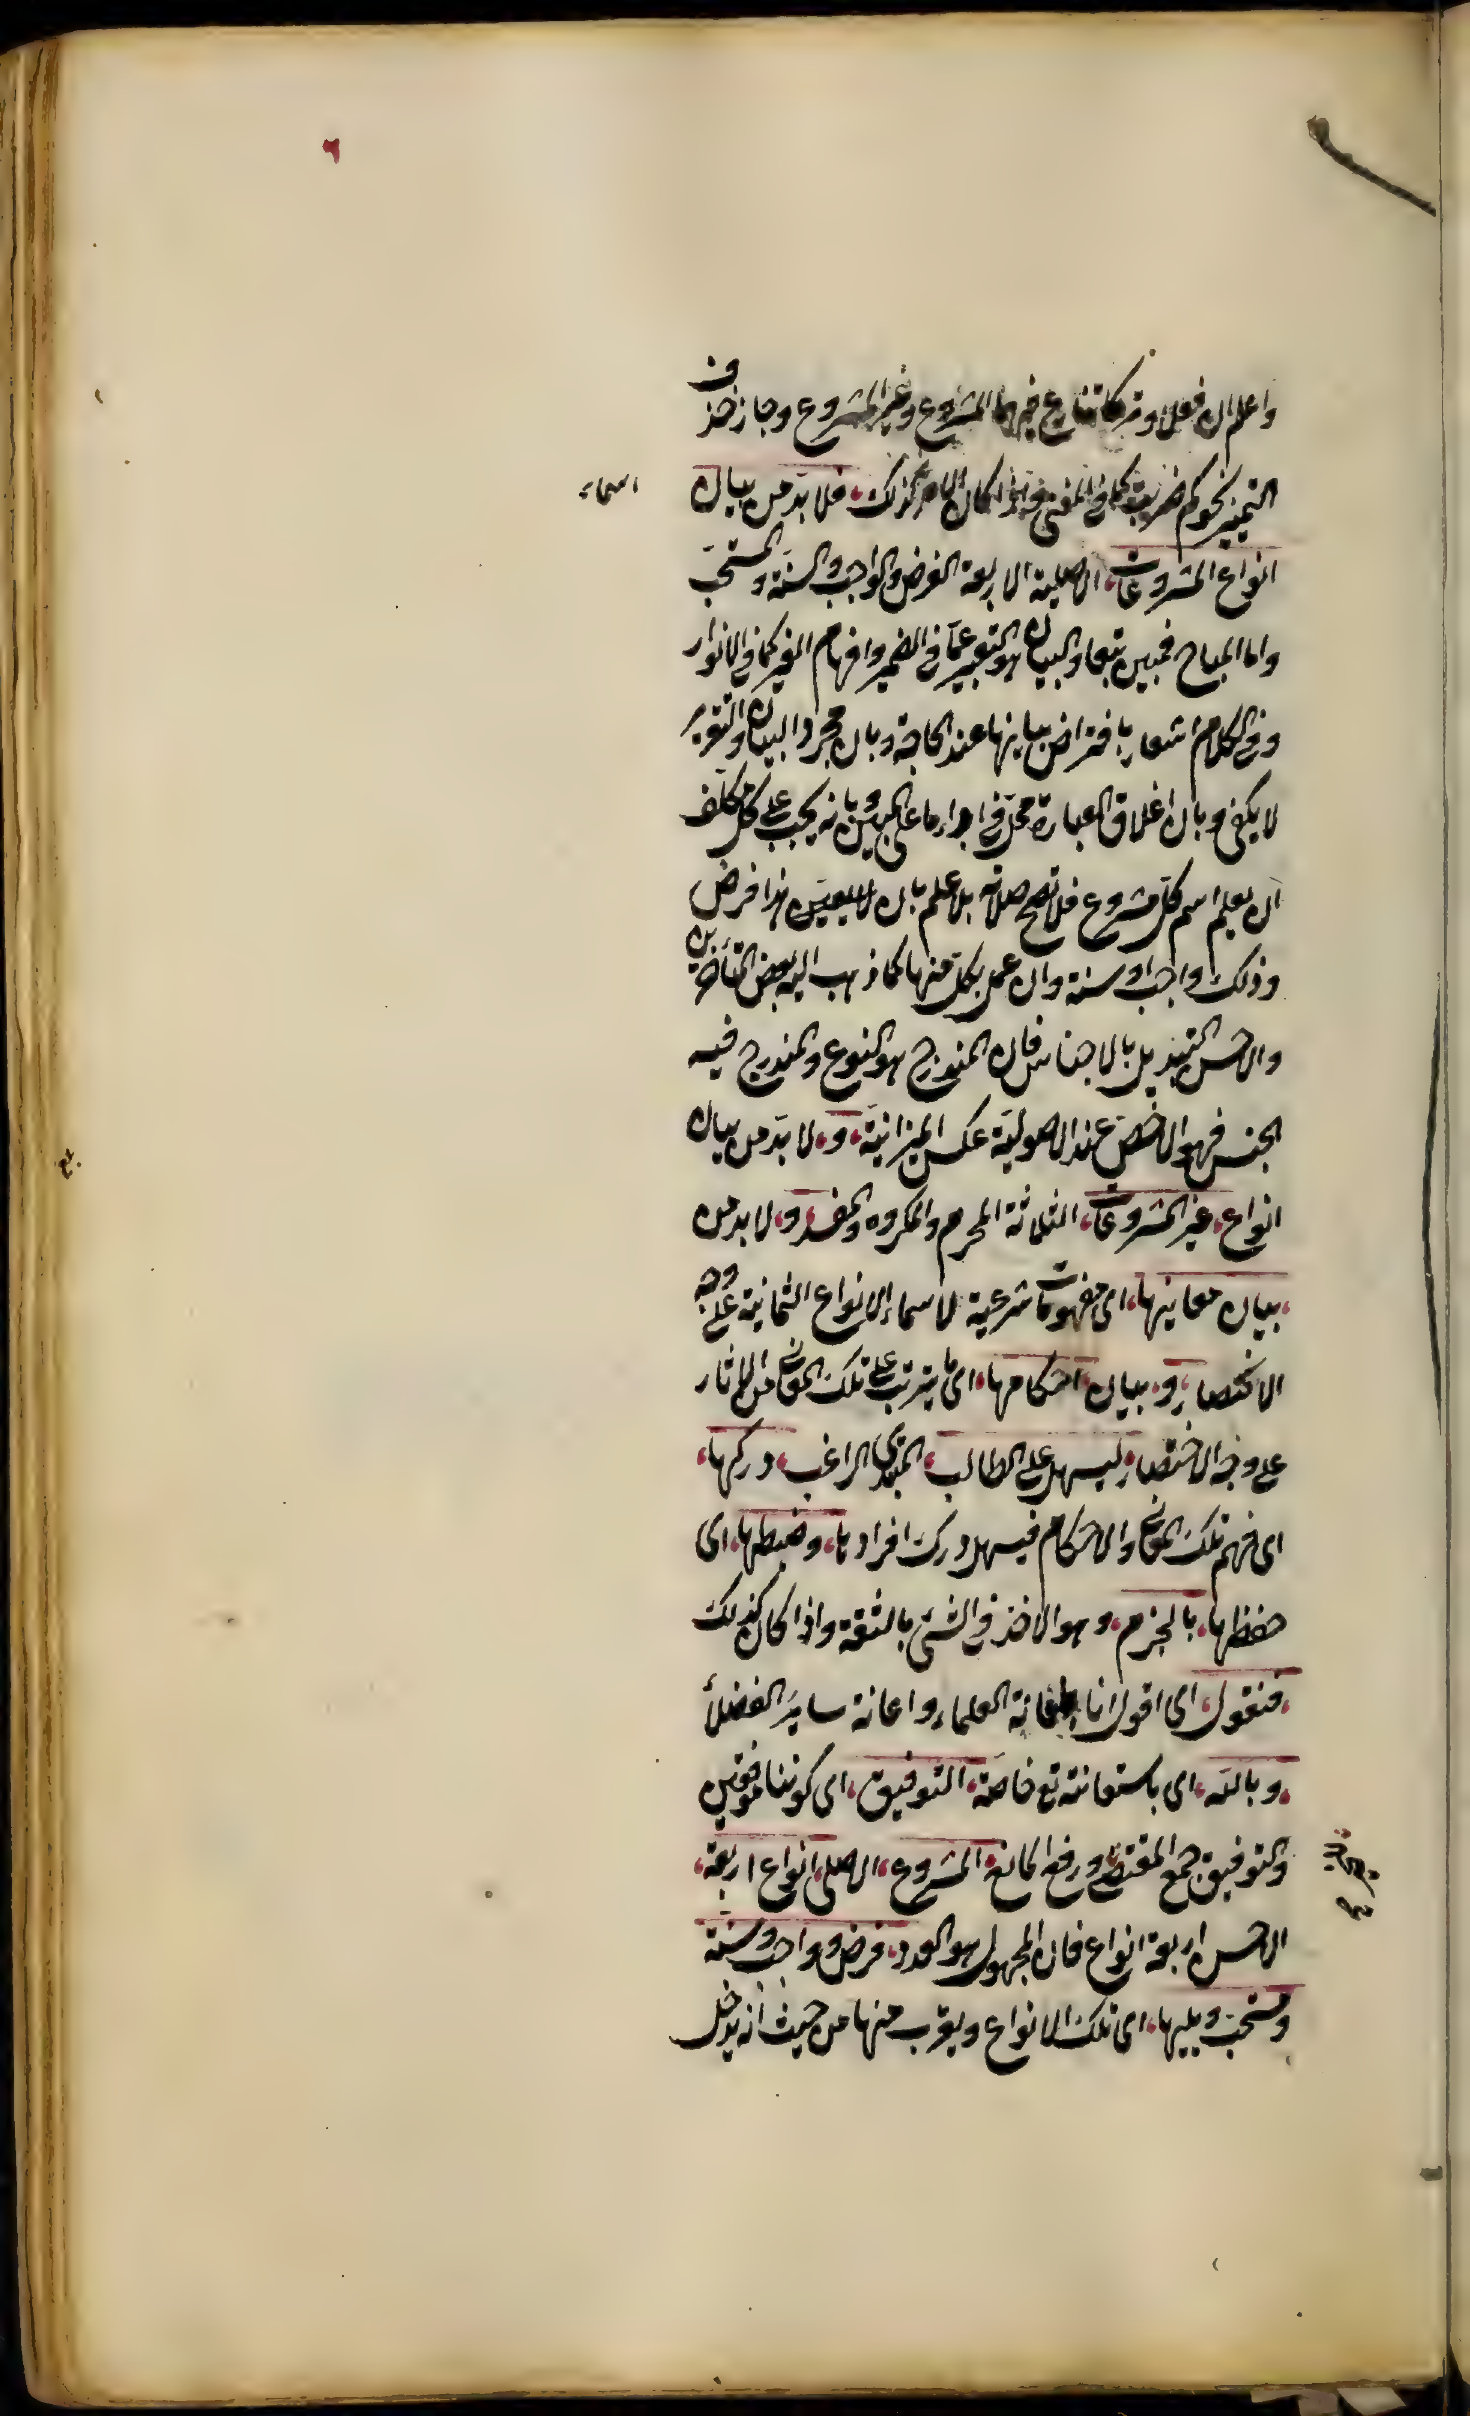 ٦
واعلم ان فعلا وتركا تنازع فيهما المشروع وغير المشروع وجاز حذف
التمييز نحو كم ضربت كما في المغني فاذا كان الامر كذلك فلا بد من بيان
اسماء
انواع المشروعات الاصلية الاربعة الفرض والواجب والسنة والمستحب
واما المباح فمبين تبعا والبيان هو التعبير عما في الضمير وافهام الغير كما في الانوار
وفي الكلام اشعار بافتراض بيانها عند الحاجة وبان مجرد البيان والتقرير
لا يكفى وبان اغلاق العبارة مخل في ابراء ما على المبين وبانه يجب على كل مكلف
ان يعلم اسم كل مشروع فلا تصح صلاته بلا علم بان لا يعين هذا فرض
وذلك واجب او سنة وان عمل بكل منها كما ذهب اليه بعض المتأخرين
والاحسن التبديل بالاجناس فان المندرج هو النوع والمندرج فيه
الجنس فهو الاخص عند الاصولية عكس الميزانية و لا بد من بيان
انواع غير المشروعات الثلاثة المحرم والمكروه والمفسد و لا بد من
بيان معانيها اى مفهومات شرعية لاسماء الانواع الثمانية على وجه
الاختصار و بيان احكامها اى ما يترتب على تلك المعاني من الاثار
على وجه الاختصار ليسهل على الطالب المبتدى الراغب دركها
اى فهم تلك المعاني والاحكام فيسهل درك افرادها وضبطها اى
حفظها بالجزم وهو الاخذ في الشئ بالثقة واذا كان كذلك
فنقول اى اقول انا واعانة سائر الفضلاء
وبالله اى باستعانته تع خاصة التوفيق اى كوننا موفقين
والتوفيق جمع المقتضى ورفع المانع المشروع الاصلى انواع اربعة
الاحسن اربعة انواع فان المجهول هو العدد فرض وواجب وسنة
ومستحب ويليها اى تلك الانواع ويقرب منها من حيث انه يدخل